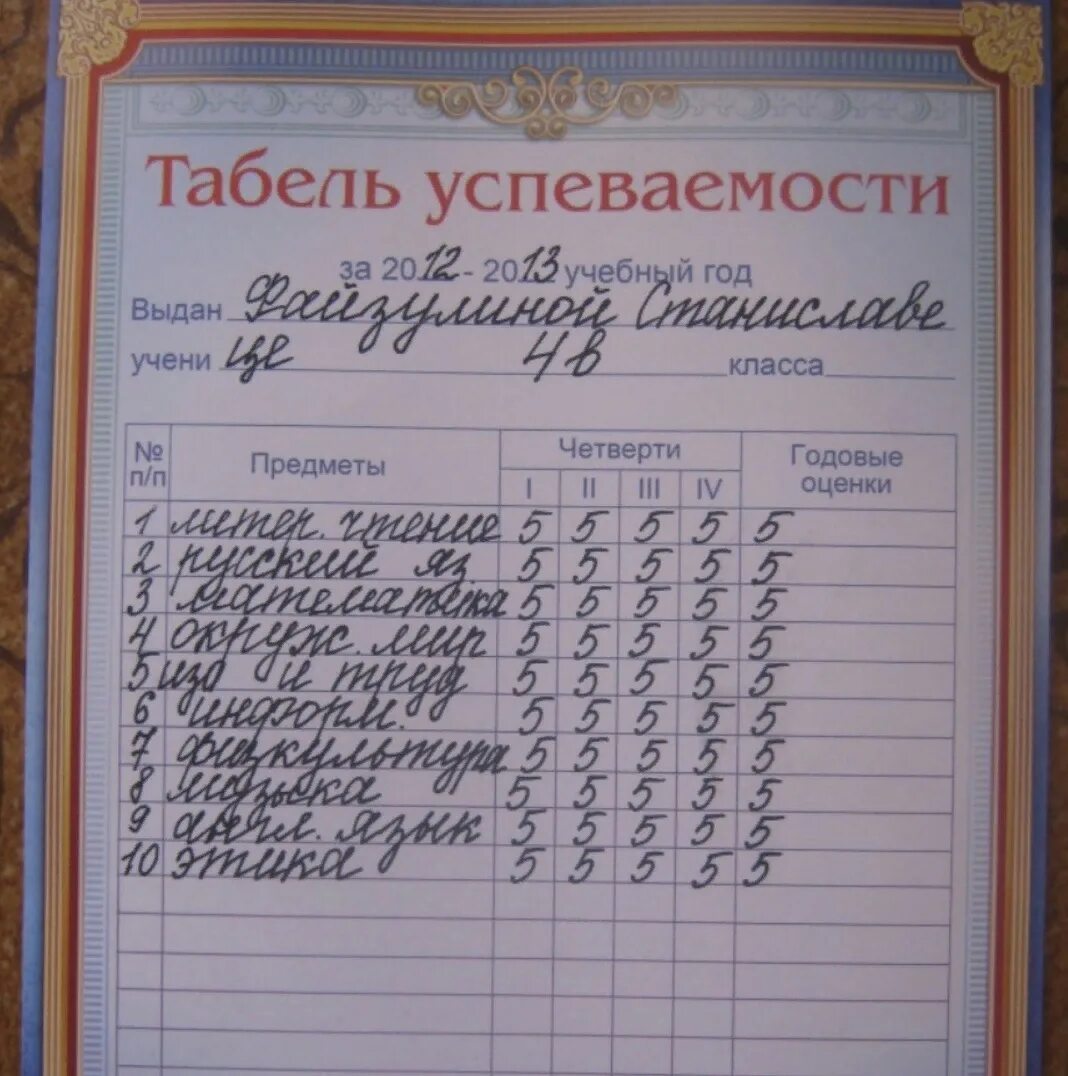 Табель успеваемости
за 2012 - 2013 учебный год
Выдан Файзулиной Станиславе
учени це 4в класса
№ п/п Предметы Четверти Годовые оценки
I II III IV
1 литер. чтение 5 5 5 5 5
2 русский яз. 5 5 5 5 5
3 математика 5 5 5 5 5
4 окруж. мир 5 5 5 5 5
5 изо и труд 5 5 5 5 5
6 информ. 5 5 5 5 5
7 физкультура 5 5 5 5 5
8 музыка 5 5 5 5 5
9 англ. язык 5 5 5 5 5
10 этика 5 5 5 5 5